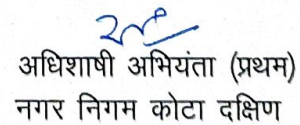 अधिशाषी अभियंता (प्रथम)
नगर निगम कोटा दक्षिण